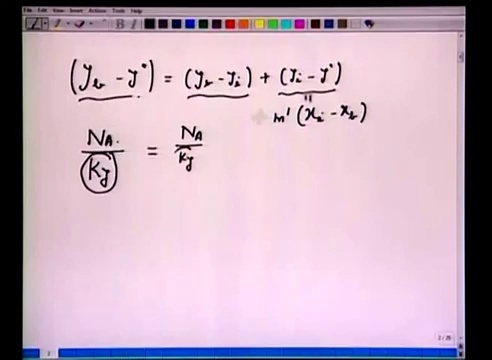 File Edit View Insert Actions Tools Help
(y_b - y*) = (y_b - y_i) + (y_i - y*)
॥
m' (x_i - x_b)
N_A / K_y = N_A / k_y